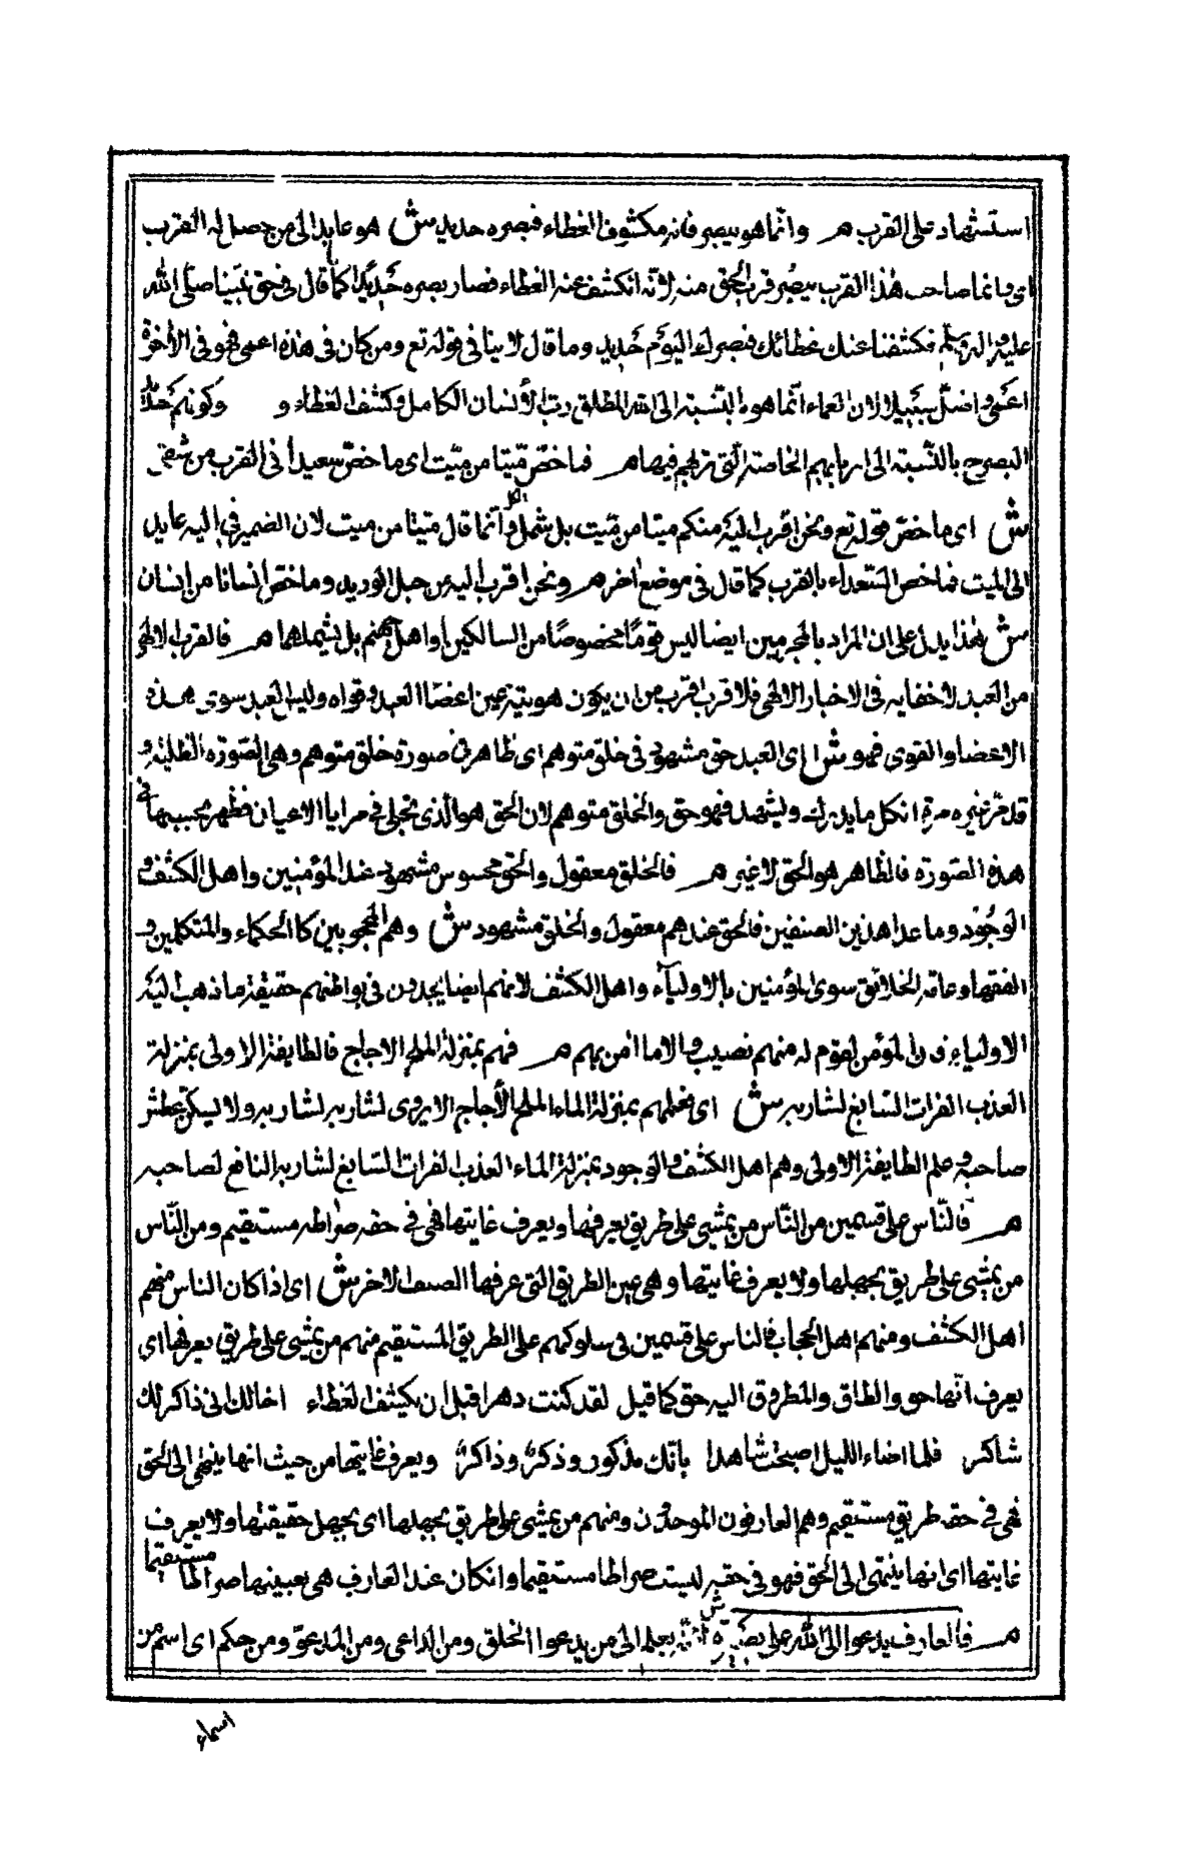 استشهاد على القرب م وانّما هو يبصر فانه مكشوف الغطاء فبصره حديد ش هو عايد الى من حصل له القرب
اى وانما صاحب هذا القرب يبصر قرب الحق منه لانّه انكشف عنه الغطاء فصار بصره حديدًا كما قال فى حق نبيّنا صلى الله
عليه واله وسلم فكشفنا عنك غطائك فبصرك اليوم حديد وما قال لا ينافى قوله تع ومن كان فى هذه اعمى فهو فى الآخرة
اعمى واضلّ سبيلا لان العماء انّما هو بالنّسبة الى الله المطلق رب الانسان الكامل وكشف الغطاء و وكونهم حداد
البصر بالنّسبة الى اربابهم الخاصة الّتى تربهم فيها م فما خصّ ميّتا من ميّت اى ما خصّ سعيدا فى القرب من شقى
ش اى ما خصّ قوله تع ونحن اقرب اليه منكم ميتا من ميّت بل شمل الكل وانّما قال ميتا من ميت لان الضمير فى اليه عايد
الى الميت فما خص السّعداء بالقرب كما قال فى موضع آخر م ونحن اقرب اليه من حبل الوريد وما خصّ انسانا من انسان
ش فهذا يدل على ان المراد بالمجرمين ايضا ليس قومًا مخصوصًا من السالكين او اهل جهنم بل يشملهما م فالقرب الالهى
من العبد لا خفا به فى الاخبار الالهى فلا قرب اقرب من ان يكون هويته عين اعضا العبد وقواه وليس العبد سوى هذه
الاعضا والقوى فهو ش اى العبد حق مشهود فى خلق متوهم اى ظاهر فى صورة خلق متوهم وهى الصّورة الظلّية و
قد مرّ غير مرة ان كل ما يدرك ويشهد فهو حق والخلق متوهم لان الحق هو الّذى تجلى فى مرايا الاعيان فظهر بحسبها فى
هذه الصّورة فالظاهر هو الحق لا غير م فالخلق معقول والحق محسوس مشهود عند المؤمنين واهل الكشف و
الوجود وما عدا هذين الصنفين فالحق عندهم معقول والخلق مشهود ش وهم المحجوبين كالحكماء والمتكلمين و
الفقهاء وعامة الخلائق سوى المؤمنين بالاولياء واهل الكشف لانهم ايضا يجدون فى بواطنهم حقيقة ما ذهب اليه
الاولياء والا لما امن بهم م فهم بمنزلة الملح الاجاج فالطايفة الاولى بمنزلة
العذب الفرات السّايغ لشاربه ش اى فعلمهم بمنزلة الماء الملح الأجاج لا يروى لشاربه لشاربه ولا يسكن عطش
صاحبه وعلم الطايفة الاولى وهم اهل الكشف والوجود بمنزلة الماء العذب الفرات السّايغ لشاربه النافع لصاحبه
م فالنّاس على قسمين من النّاس من يمشى على طريق يعرفها ويعرف غايتها فهى فى حقه صراط مستقيم ومن النّاس
من يمشى على طريق يجهلها ولا يعرف غايتها وهى عين الطريق التى عرفها الصنف الاخر ش اى اذا كان الناس منهم
اهل الكشف ومنهم اهل الحجاب فالناس على قسمين فى سلوكهم على الطريق المستقيم منهم من يمشى على طريق يعرفها اى
يعرف انّها حق والطارق والمطروق اليه حق كما قيل لقد كنت دهرا قبل ان يكشف الغطاء اخالك انى ذاكر لك
شاكر فلما اضاء الليل اصبحت شاهدا بانّك مذكور وذكرٌ وذاكرٌ ويعرف غايتها من حيث انها ينتهى الى الحق
فهى فى حقه طريق مستقيم وهم العارفون الموحدون ومنهم من يمشى على طريق يجهلها اى يجهل حقيقتها ولا يعرف
غايتها اى انها ينتهى الى الحق فهو فى حقه ليست صراطا مستقيما وان كان عند العارف هى بعينها صراطا مستقيما
م فالعارف يدعوا الى الله على بصيرة ش اى يعلم الى من يدعوا الخلق ومن الداعى ومن المدعوّ ومن حكم اى اسم من
اسماء